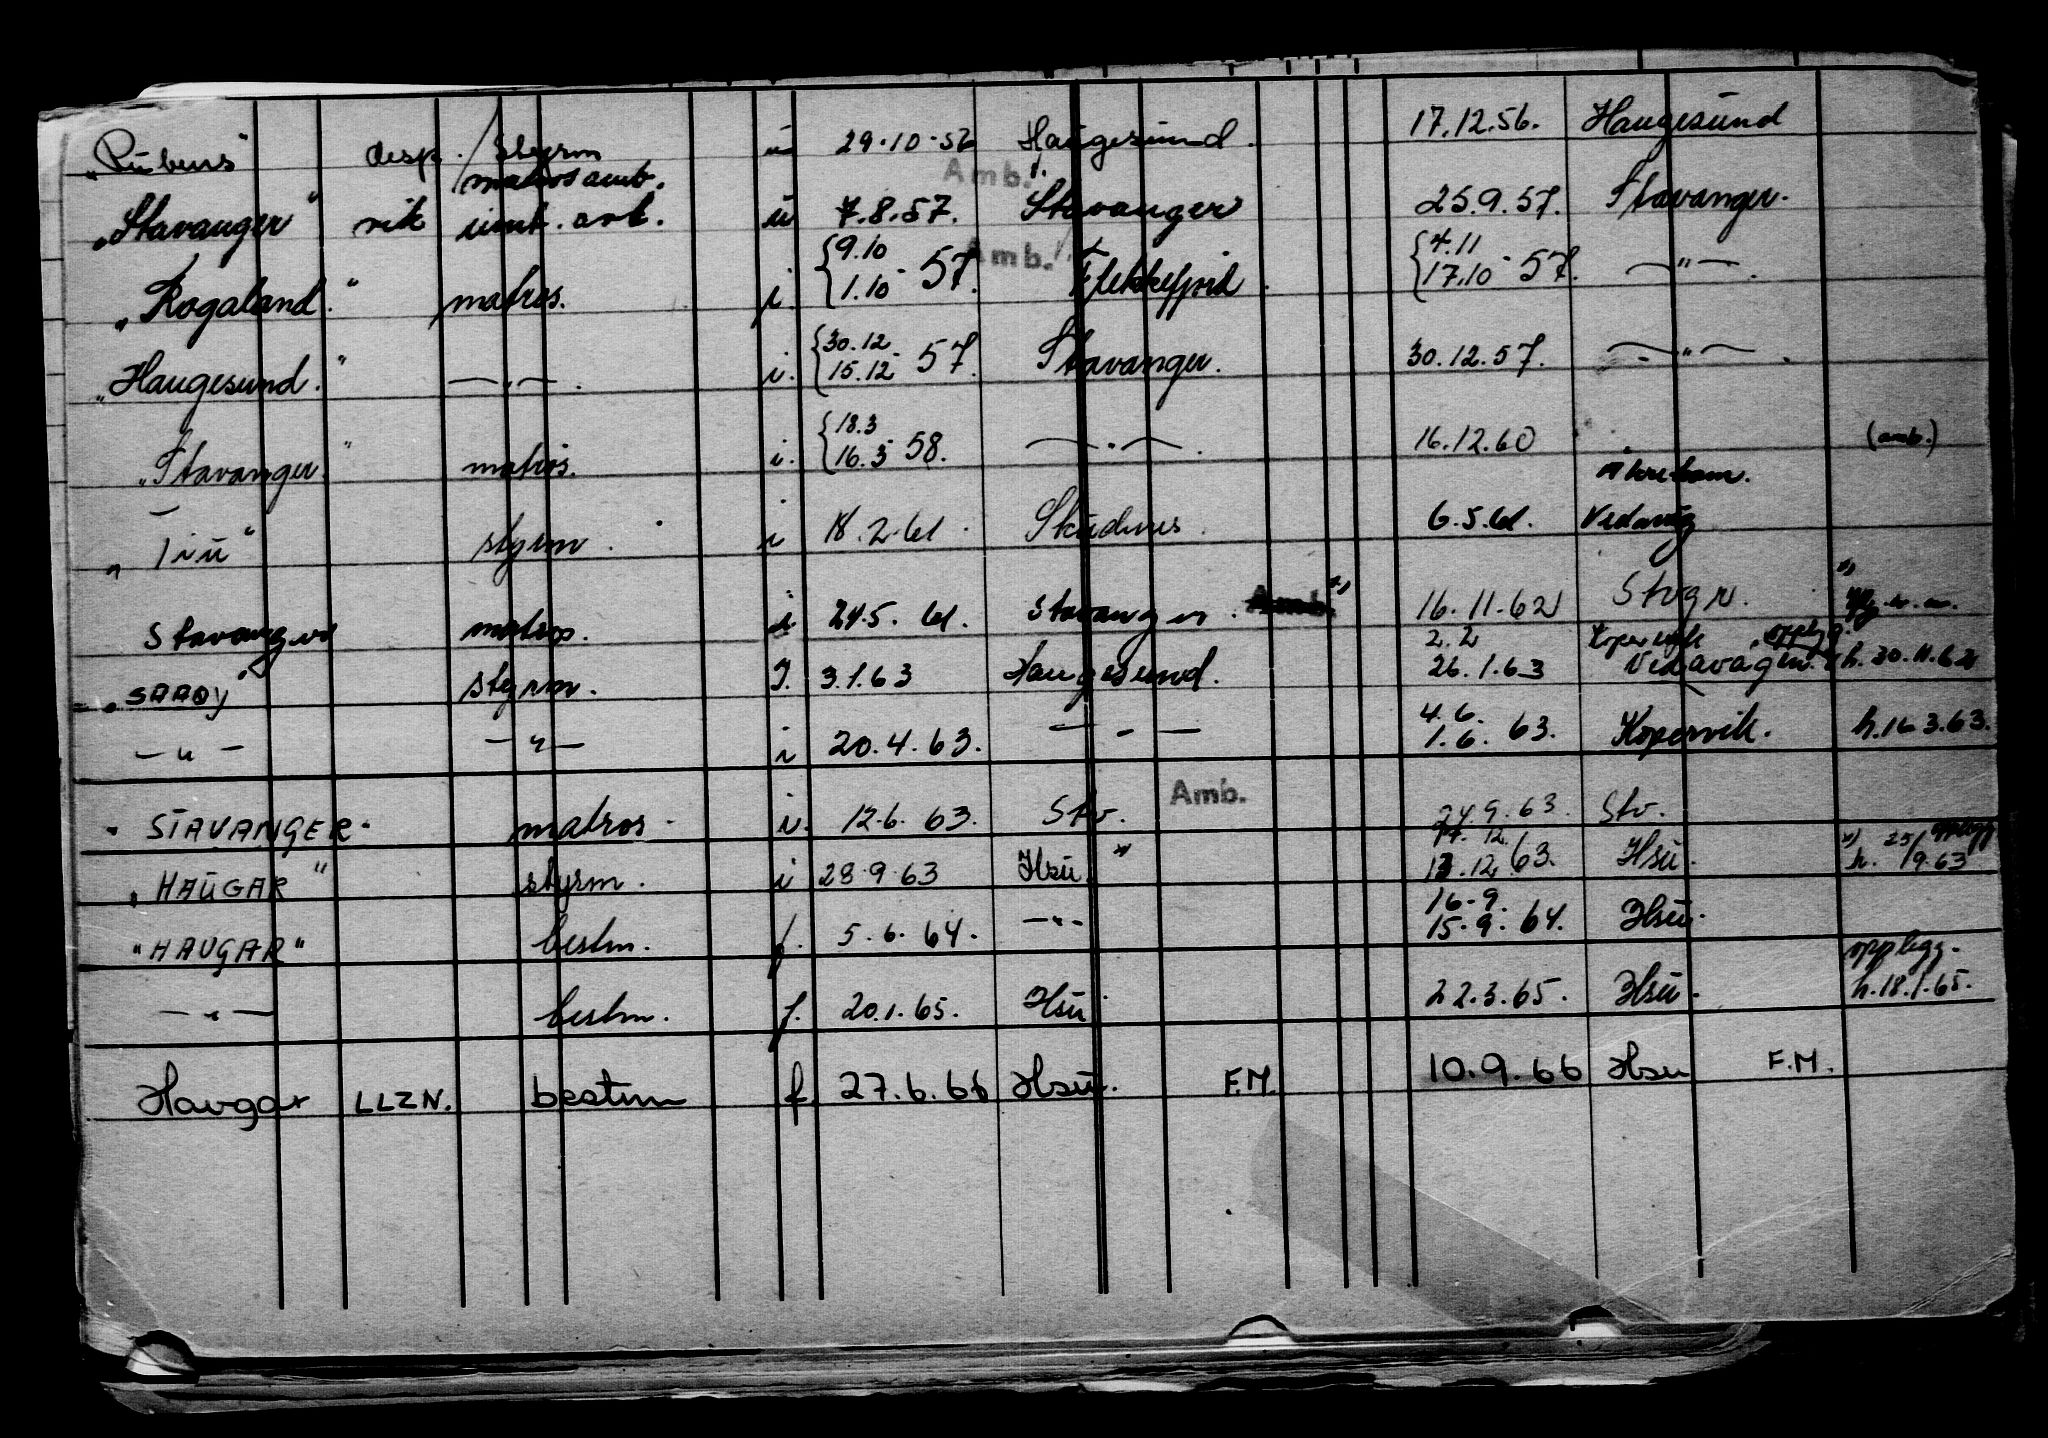 "Rubens" desp. / styrm u 29.10.56 Haugesund. 17.12.56. Haugesund
Amb.
matros amb.
"Stavanger" vik imt. arb. u 7.8.57. Stavanger 25.9.57. Stavanger.
Amb.
"Rogaland." matros. i. {9.10 1.10 - 57. Flekkefjord. {4.11 17.10 - 57. — " —.
"Haugesund." — " —. i. {30.12 15.12 - 57. Stavanger. 30.12.57. — " —.
"Stavanger." matros. i. {18.3 16.3 - 58. — " —. 16.12.60 (amb.)
Åkrehamn.
" " styrm. i 18.2.61. Skudnes. 6.5.61. Vedavåg
Stavanger matros. i 24.5.61. Stavanger. Amb. x) 16.11.62 Stvgr. x)
2.2 Kopervik opplegg.
"SAAOY" styrm. I. 3.1.63 Haugesund. 26.1.63 Vedavågen. h. 30.11.62
— " — — " — i 20.4.63. — " — 4.6. 1.6. 63. Kopervik. h. 16.3.63.
"STAVANGER" matros. i. 12.6.63. Stv. Amb. 24.9.63 Stv.
"HAUGAR" styrm. i 28.9.63 Hsu. x) 17.12. 13.12.63. Hsu. x) opplegg h. 25/9.63
"HAUGAR" bestm. f. 5.6.64. — " — 16.9. 15.9.64. Hsu.
— " — bestm. f. 20.1.65. Hsu. 22.3.65. Hsu. opplegg. h. 18.1.65.
Haugar LLZN. bestm f. 27.6.66 Hsu. F.M. 10.9.66 Hsu F.M.